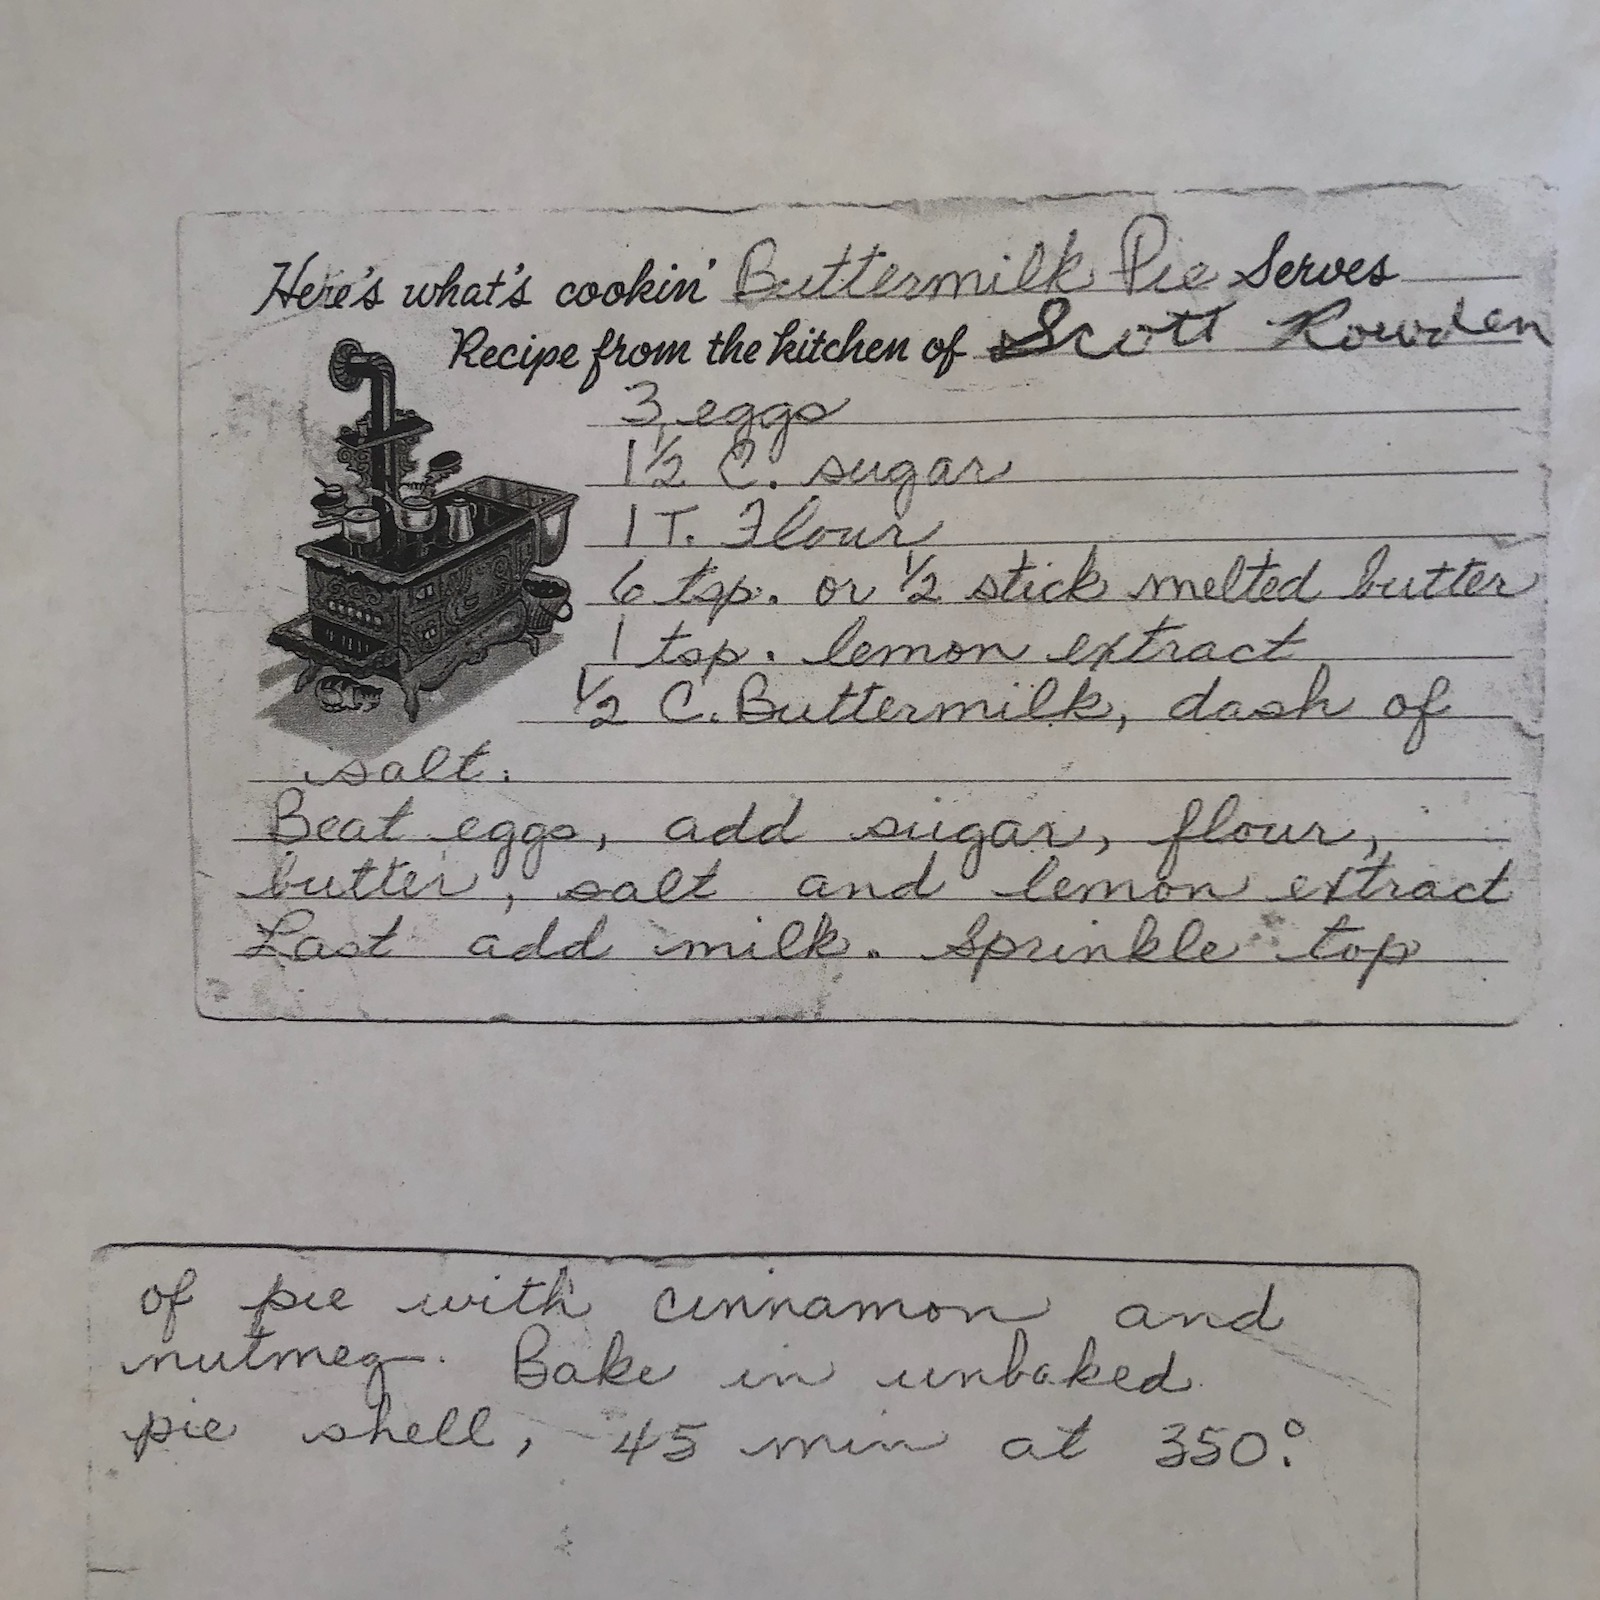 Here's what's cookin' Buttermilk Pie Serves
Recipe from the kitchen of Scott Rowden
3 eggs
1 1/2 C. sugar
1 T. Flour
6 tsp. or 1/2 stick melted butter
1 tsp. lemon extract
1/2 C. Buttermilk, dash of
salt.
Beat eggs, add sugar, flour,
butter, salt and lemon extract
Last add milk. Sprinkle top
of pie with cinnamon and
nutmeg. Bake in unbaked
pie shell, 45 min at 350°.